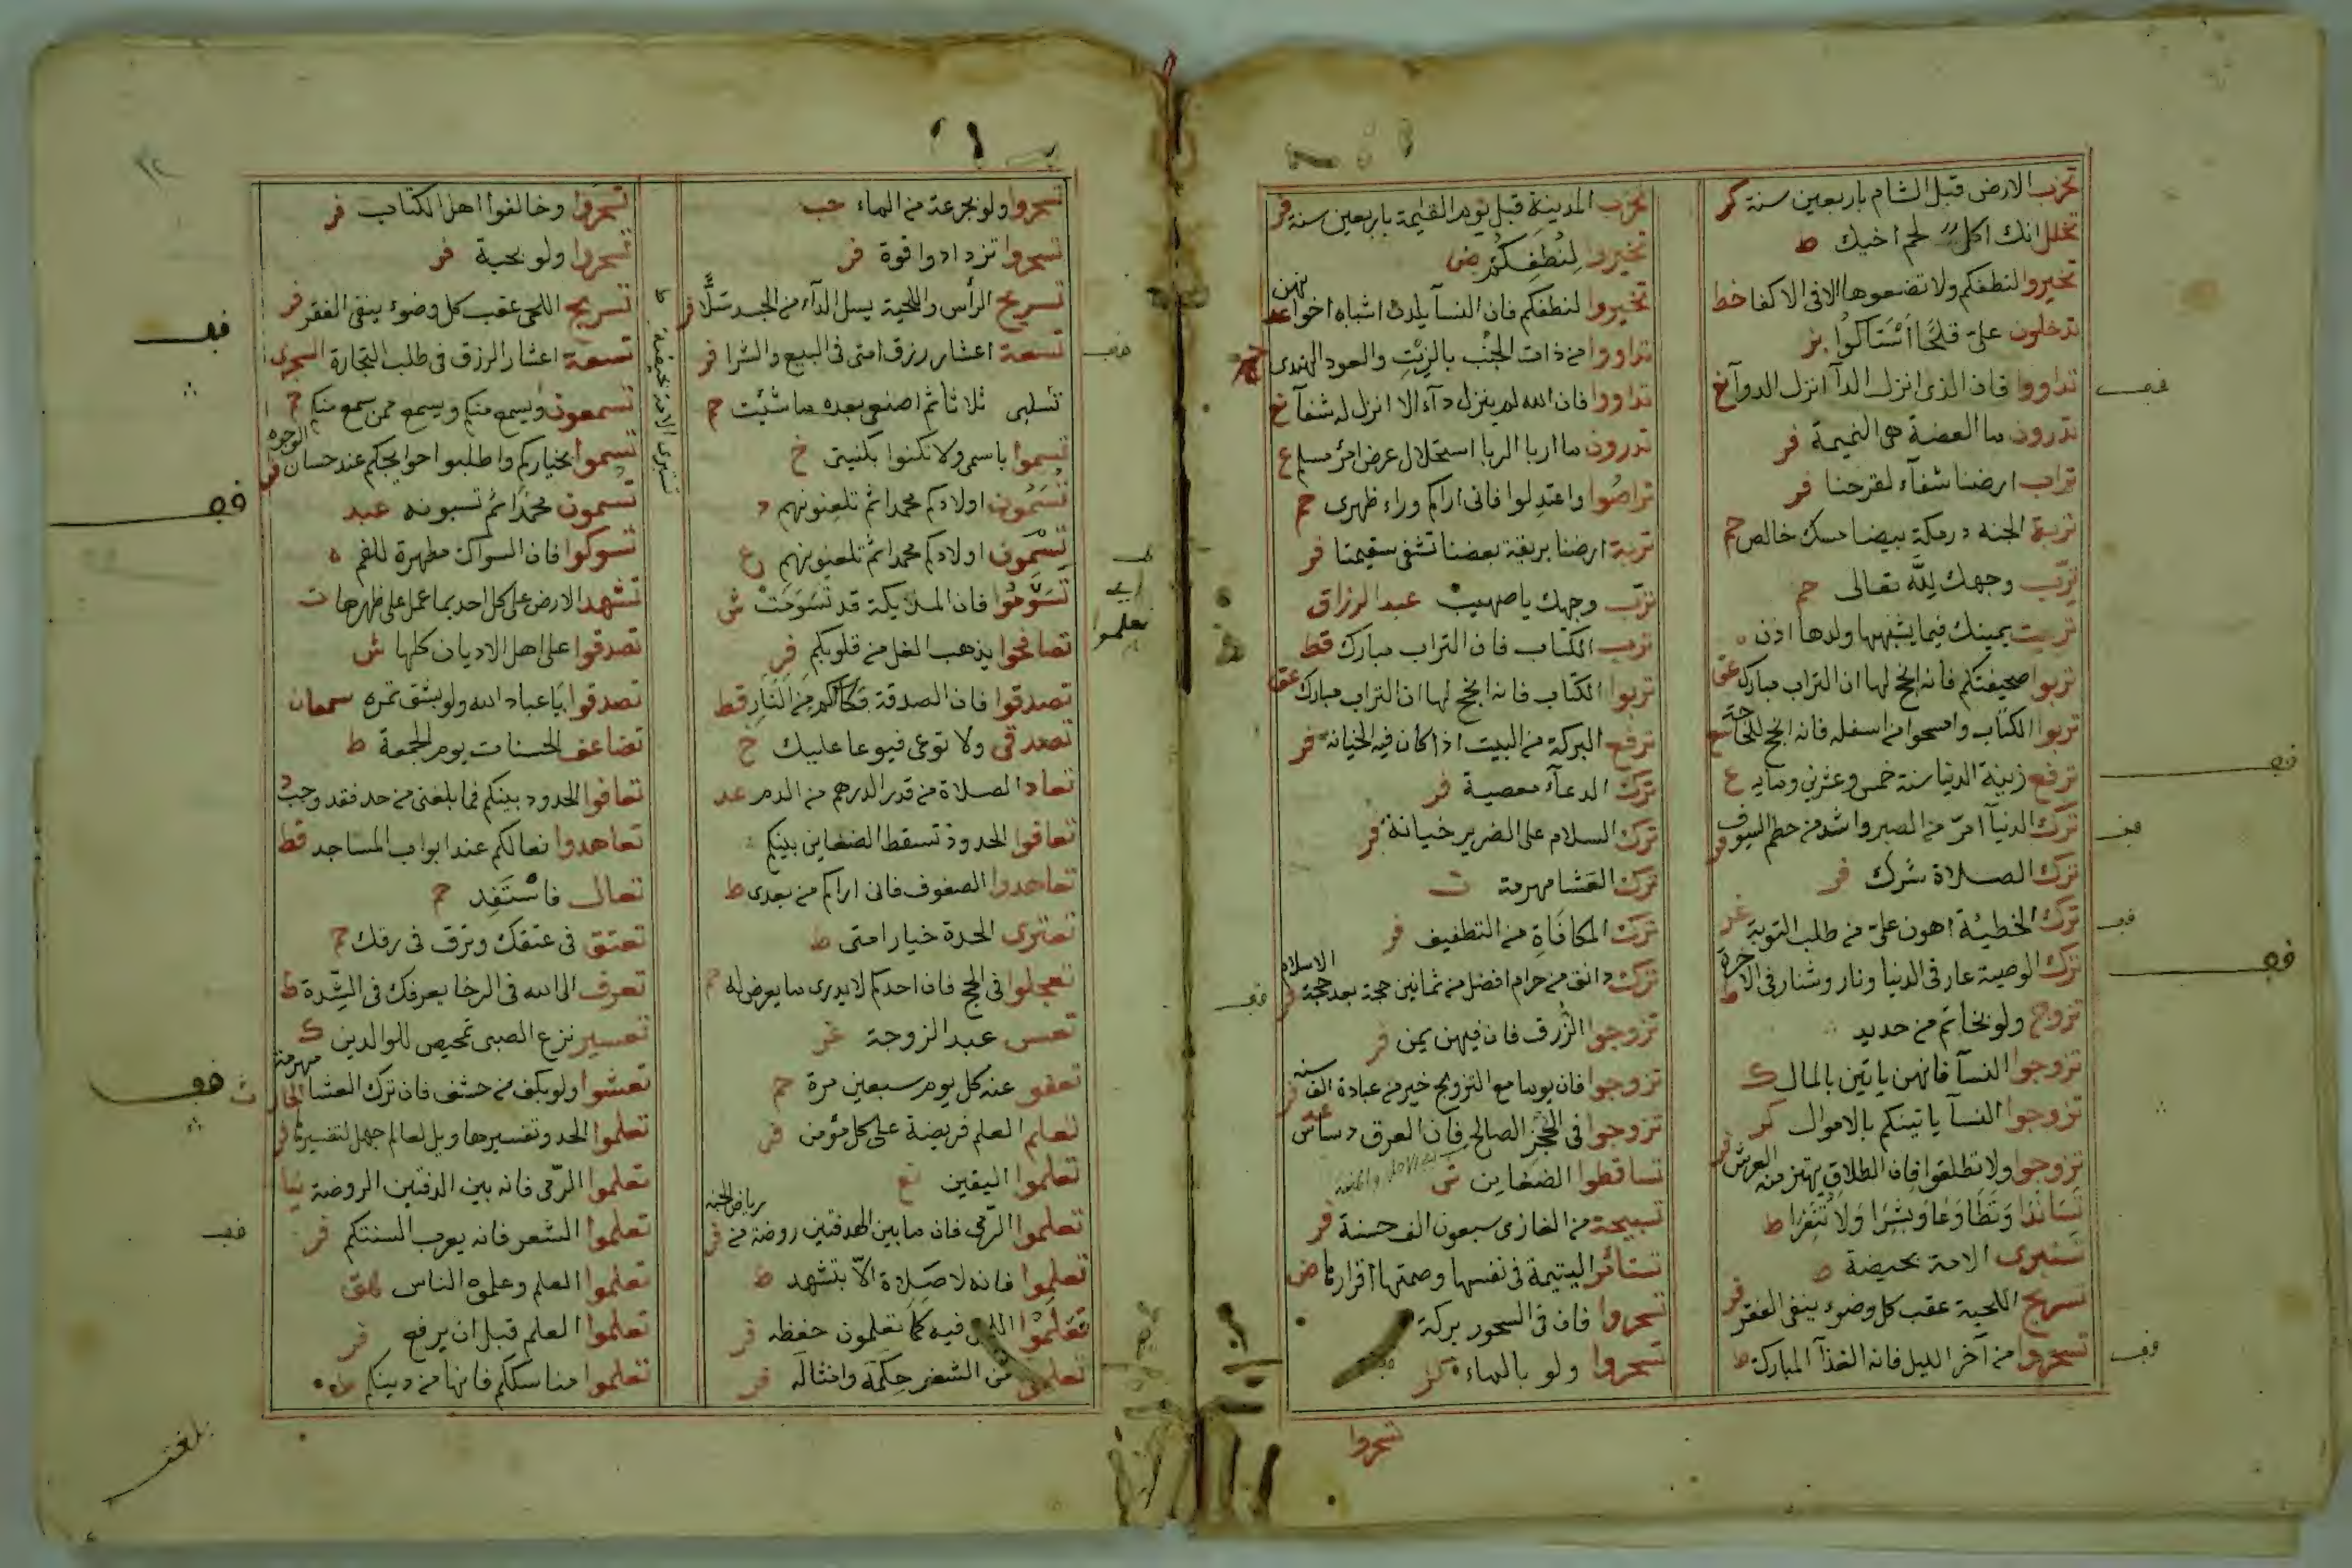 تخرب الارض قبل الشام باربعين سنة كر
تخلل انك اكل لحم اخيك ط
تخيروا لنطفكم ولا تضعوها الا في الاكفا خط
تدخلون علىّ قلحًا اسْتَاكُوا بز
تداووا فان الذى انزل الدآ انزل الدوآ خ
تدرون ما العضة هى النميمة فر
تراب ارضنا شفآء لقرحنا فر
تربة الجنه درمكة بيضا مسك خالص حم
ترّب وجهك لله تعالى حم
تربت يمينك فيما يشبهها ولدها اذن ه
تربوا صحيفتكم فانه انجح لها ان التراب مبارك عق
تربوا الكتاب واسحوا من اسفله فانه انجح للحاجة
ترفع زينة الدنيا سنة خمس وعشرين ومايه ع
ترك الدنيآ امرّ من الصبر واشد من حطم السيوف فر
ترك الصلاة شرك فر
ترك الخطيئة اهون علىّ من طلب التوبة
ترك الوصية عار فى الدنيا ونار وشنار فى الاخرة ط
تزوج ولو بخاتم من حديد
تزوجوا النسآ فانهن ياتين بالمال ك
تزوجوا النسآ ياتينكم بالاموال كر
تزوجوا ولا تطلقوا فان الطلاق يهتز منه العرش
تساندَا وَتَطَاوَعَا وَبشِرَا وَلَا تُنَفِرَا ط
تستبرى الامة بحيضة ط
تسريح اللحية عقب كل وضوء ينفى الفقر فر
تسحروا من آخر الليل فانه الغذآ المبارك ط
تخرب المدينة قبل يوم القيمة باربعين سنة فر
تخيروا لِنُطفِكُم ض
تخيروا لنطفكم فان النسآ يلدن اشباه اخواتهن عد
تداووا من ذات الجنْب بالزيْتِ والعود الهندى
تداووا فان الله لم ينزل دآء الا انزل له شفآ خ
تدرون ما اربا الربا استحلال عرض امرئ مسلم ع
تراصُوا واعتدِلوا فانى اراكم وراء ظهرى حم
تربة ارضنا بريقة بعضنا تشفى سقيمنا فر
ترّب وجهك يا صهيب عبد الرزاق
ترب الكتاب فان التراب مبارك قط
تربوا الكتاب فانه انجح لها ان التراب مبارك عق
ترفع البركة من البيت اذا كان فيه الخيانه فر
ترك الدعآء معصية فر
ترك السلام على الضرير خيانة فر
ترك العَشا مهرمة ت
ترك المكافَاةِ من التطفيف فر
ترك دانق من حرام افضل من ثمانين حجة بعد حجة الاسلام
تزوجوا الزُرق فان فيهن يمن فر
تزوجوا فان يوما مع التزويج خير من عبادة الف سنه
تزوجوا فى الحُجْزِ الصالح فان العرق دساس
تساقطوا الضغاين
تسبيحة من الغازى سبعون الف حسنة فر
تستامر اليتيمة فى نفسها وصمتها اقرارها ض
تسحروا فان فى السحور بركة
تسحروا ولو بالماء كر
تسحروا
تسحروا ولو بجرعة من الماء حب
تسحروا تزدادوا قوة فر
تسريح الرأس واللحية يسل الدآء من الجسد سَلًّا فر
تسعة اعشار رزق امتى فى البيع والشرا فر
تسلبى ثلاثا ثم اصنعى بعده ما شئت حم
تسموا باسمى ولا تكنوا بكنيتى خ
تُسَمُّون اولادكم محمدا ثم تلعنونهم
تُسْمُون اولادكم محمدا ثم تلعنونهم ع
تَسَوَّمُوا فان الملايكة قد تَسَوّمَتْ ش
تصافحوا يذهب الغل من قلوبكم فر
تصدقوا فان الصدقة فكاككم من النار قط
تصدقى ولا توعى فيوعا عليك خ
تعاد الصلاة من قدر الدرهم من الدم عد
تعافوا الحدود تسقط الضغاين بينكم
تعاهدوا الصفوف فانى اراكم من بعدى ط
تعترى الحدة خيار امتى ط
تعجلوا فى الحج فان احدكم لا يدرى ما يعرض له حم
تعس عبد الزوجة غر
تعفو عنه كل يوم سبعين مرة حم
تعلم العلم فريضة على كل مؤمن فر
تعلموا اليقين نع
تعلموا الرّمى فان ما بين الهدفتين روضة من رياض الجنة فر
تعلموا فانه لا صَلاة الّا بتشهد ط
تعلّموْا فيه كما تعلمون حفظه فر
من الشعر حِكَمَه وامثاله فر
تستبرى الامة بحيضة ط
تسحروا وخالفوا اهل الكتاب فر
تسحروا ولو بحبة فر
تسريح اللحى عقب كل وضوء ينفى الفقر فر
تسعة اعشار الرزق فى طلب التجارة السجزى
تسمعون ويسمع منكم ويسمع ممن سمع منكم حم
تسموا بخياركم واطلبوا حوايجكم عند حسان الوجوه
تسمون محمدا ثم تسبونه عبد
تسوكوا فان السواك مطهرة للفم ه
تشهد الارض على كل احد بما عمل على ظهرها ت
تصدقوا على اهل الاديان كلها ش
تصدقوا يا عباد الله ولو بشق تمره سمعان
تضاعف الحسنات يوم الجمعة ط
تعافوا الحدود بينكم فما بلغنى من حد فقد وجب د
تعاهدوا نعالكم عند ابواب المساجد قط
تعال فاسْتَقِد حم
تعتق فى عتقك وترق فى رقك حم
تعرف الى الله فى الرخا يعرفك فى الشِدة ط
تعسير نزع الصبى تمحيص للوالدين ك
تعشوا ولو بكف من حشف فان ترك العشا مهرمة
تعلموا الحد وتفسيرها ويل لعالم جهل لتفسيرها فر
تعلموا الرّمى فانه بين الدفتين الروضة
تعلموا الشعر فانه يعرب السنتكم فر
تعلموا العلم وعلموه الناس هق
تعلموا العلم قبل ان يرفع فر
تعلموا مناسككم فانها من دينكم